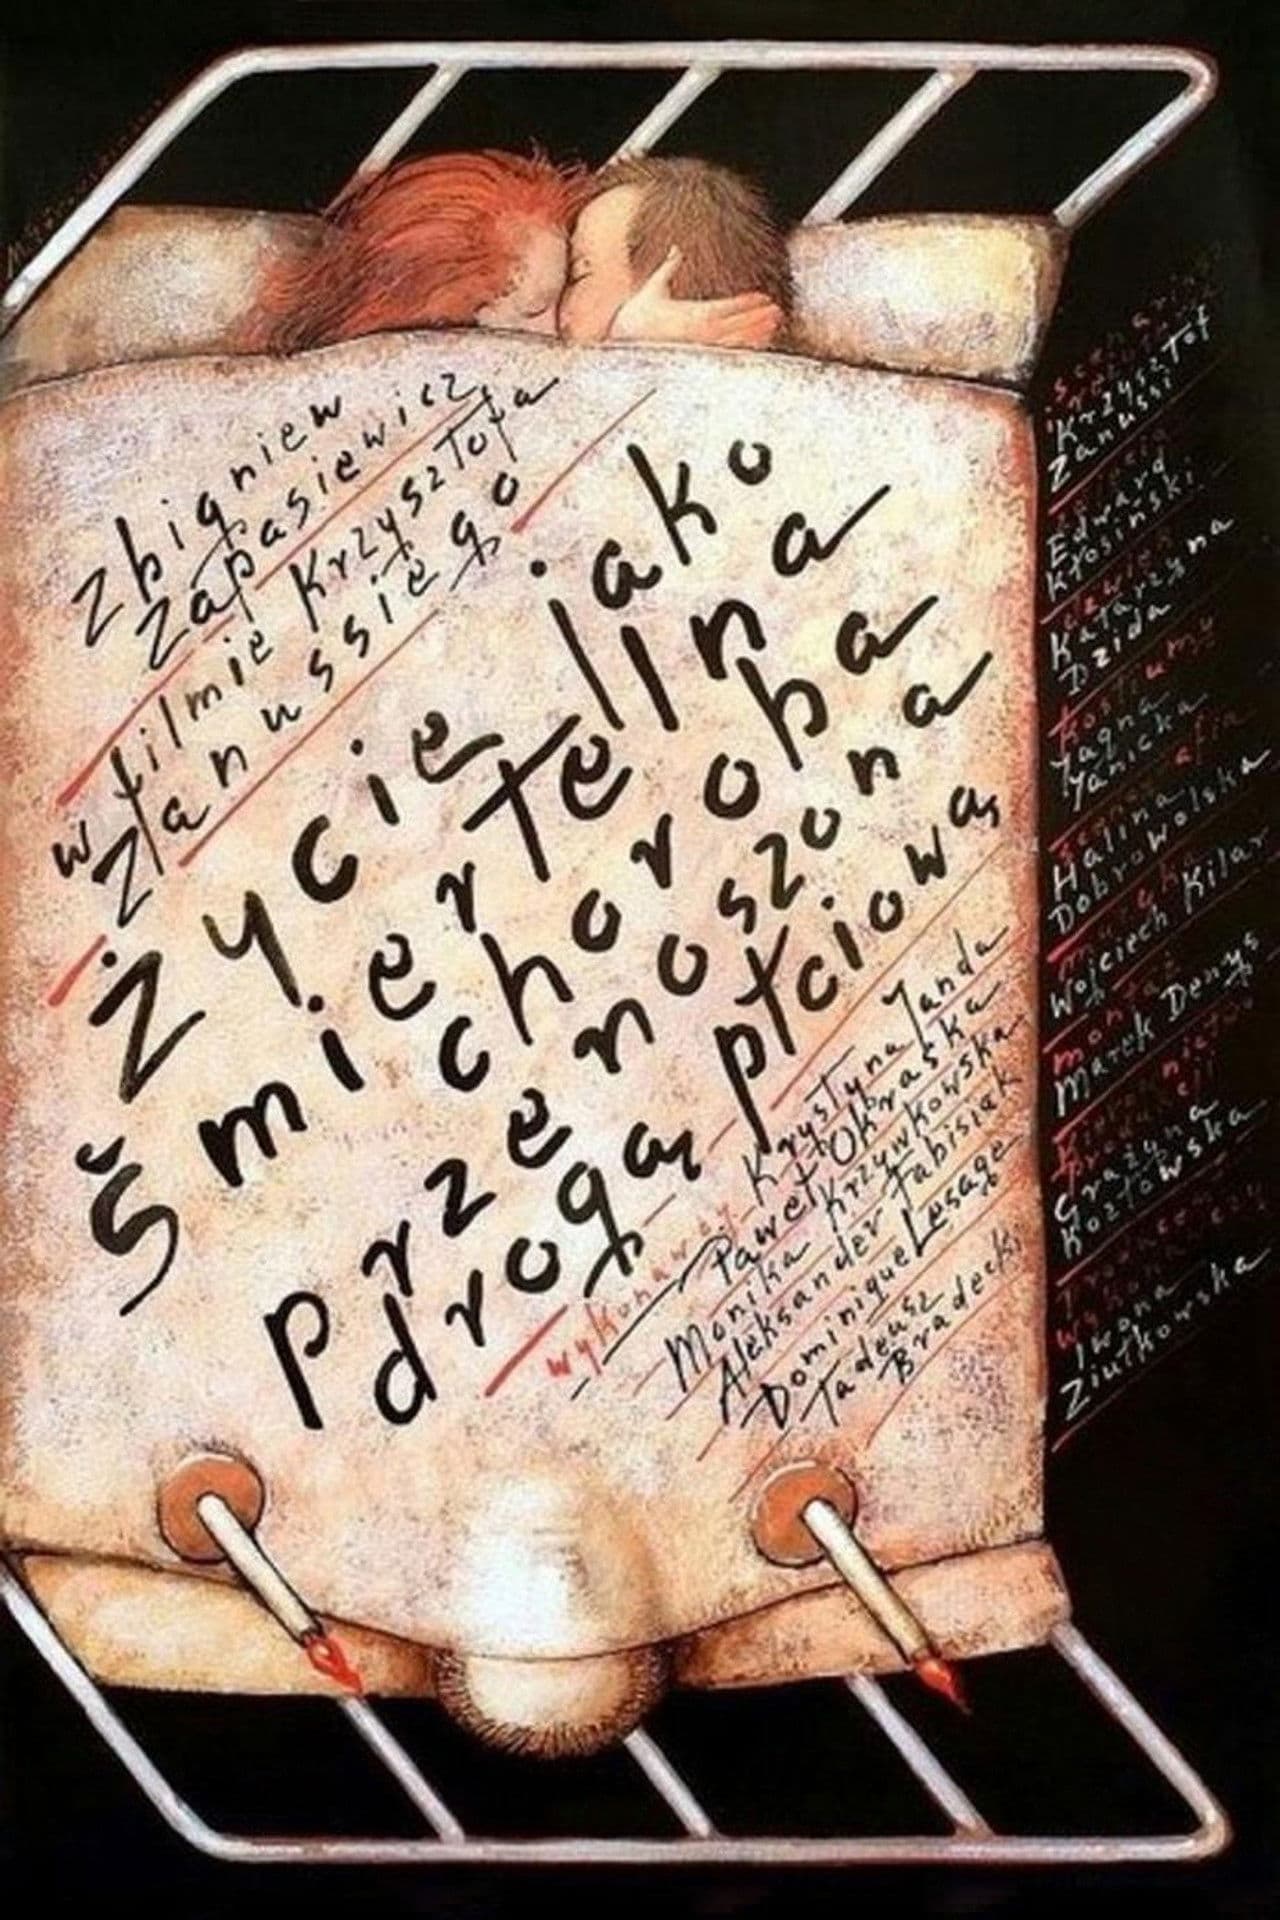 Zbigniew
Zapasiewicz
w filmie Krzysztofa
Zanussiego
Życie jako
Śmiertelna
choroba
przenoszona
drogą płciową
wykonawcy Krystyna Janda
Paweł Okraska
Monika Krzywkowska
Aleksander Fabisiak
Dominique Lesage
Tadeusz
Bradecki
Krzysztof
Zanussi
Edward
Kłosiński
Katarzyna
Dzida
kostiumy
Jagna
Janicka
Halina
Dobrowolska
muzyka
Wojciech Kilar
montaż
Marek Denys
Grażyna
Kozłowska
Iwona
Ziułkowska